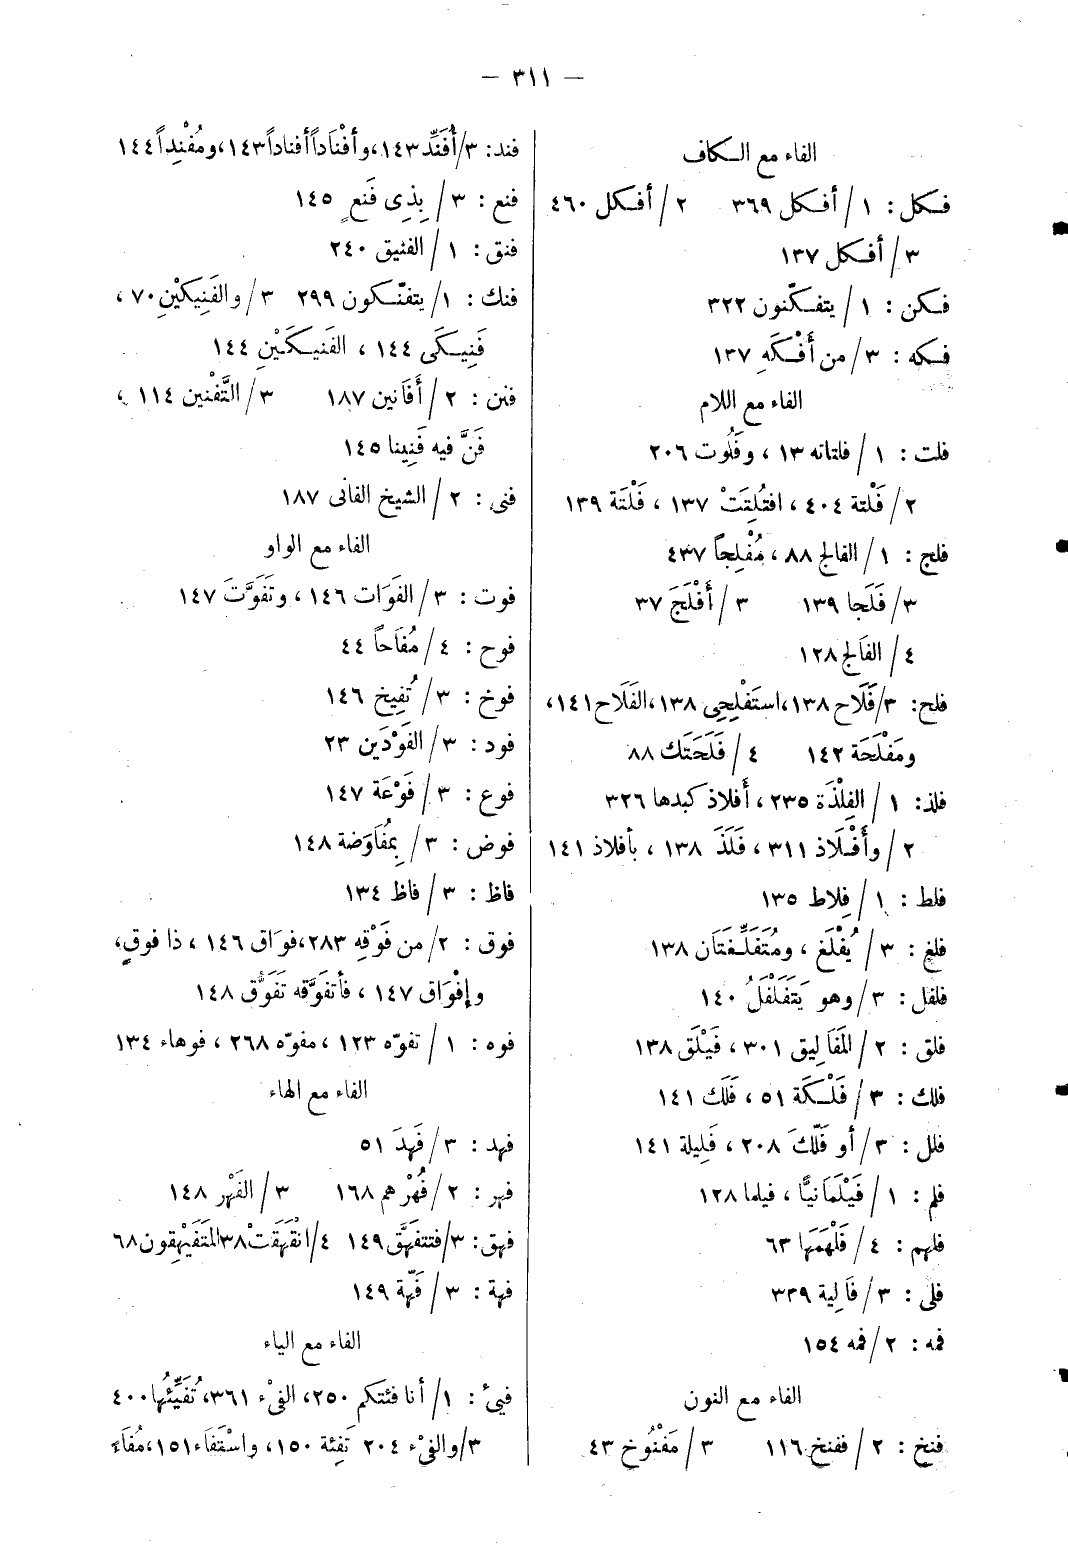 — ٣١١ —
الفاء مع الـكاف
فـكل : ١ / أفـكل ٣٦٩ ٢ / أفـكل ٤٦٠
٣ / أفـكل ١٣٧
فـكن : ١ / يتفـكّنون ٣٢٢
فـكه : ٣ / من أَفْـكَهِ ١٣٧
الفاء مع اللام
فلت : ١ / فلتاته ١٣ ، وفَلُوت ٢٠٦
٢ / فَلْتة ٤٠٤ ، افتُلِتَتْ ١٣٧ ، فَلْتَة ١٣٩
فلج : ١ / الفالج ٨٨ ، مُفْلِجاً ٤٣٧
٣ / فَلَجا ١٣٩ ٣ / أَفْلَجَ ٣٧
٤ / الفَالج ١٢٨
فلح: ٣/فَلَاح ١٣٨،استَفْلِحِى ١٣٨،الفَلَاح ١٤١،
ومَفْلَحَة ١٤٢ ٤ / فَلَحَتَك ٨٨
فلذ: ١ / الفِلْذَة ٢٣٥ ، أَفلاذ كبدها ٣٢٦
٢ / وأَفْـلَاذ ٣١١ ، فَلَذَ ١٣٨ ، بأفلاذ ١٤١
فلط : ١ / فِلاط ١٣٥
فلغ : ٣ / يُفْلَغ ، ومُتَفَلِّـغَتَان ١٣٨
فلفل : ٣ / وهو يَتَفَلْفَلُ ١٤٠
فلق : ٢ / المَفَالِيق ٣٠١ ، فَيْلَق ١٣٨
فلك : ٣ / فَلْـكَة ٥١ ، فَلَك ١٤١
فلل : ٣ / أو فَلّكَ ٢٠٨ ، فَلِيلة ١٤١
فلم : ١ / فَيْلَمَانيًّا ، فيلما ١٢٨
فلهم : ٤ / فَلْهَمَها ٦٣
فلى : ٣ / فَالِية ٣٣٩
فمه : ٢ / فمه ١٥٤
الفاء مع النون
فنخ : ٢ / ففنخ ١١٦ ٣ / مَفْنُوخ ٤٣
فند: ٣/أُفَنِّد ١٤٣،وأفْنَاداً أفناداً ١٤٣،ومُفْنِداً ١٤٤
فنع : ٣ / بِذِى فَنَعٍ ١٤٥
فنق : ١ / الفنيق ٢٤٠
فنك : ١ / يتفنّـكون ٢٩٩ ٣ / والفَنِيكَيْنِ ٧٠ ،
فَنِيـكَى ١٤٤ ، الفَنيـكَـيْنِ ١٤٤
فنن : ٢ / أَفَانين ١٨٧ ٣ / التَّفْنين ١١٤ ،
فَنَّ فيه فَنِينا ١٤٥
فنى : ٢ / الشيخ الفانى ١٨٧
الفاء مع الواو
فوت : ٣ / الفَوَات ١٤٦ ، وتَفَوَّتَ ١٤٧
فوح : ٤ / مُفَاحاً ٤٤
فوخ : ٣ / تُفِيخ ١٤٦
فود : ٣ / الفَوْدَين ٢٣
فوع : ٣ / فَوْعَة ١٤٧
فوض : ٣ / بِمُفَاوَضة ١٤٨
فاظ : ٣ / فاظ ١٣٤
فوق : ٢/ من فَوْقِهِ ٢٨٣،فوَاق ١٤٦ ، ذا فوقٍ،
وإفْوَاق ١٤٧ ، فأتفوَّقه تَفَوُّق ١٤٨
فوه : ١ / تفوّه ١٢٣ ، مفوّه ٢٦٨ ، فوهاء ١٣٤
الفاء مع الهاء
فهد : ٣ / فَهِدَ ٥١
فهر : ٢ / فُهْرهم ١٦٨ ٣ / الفَهْر ١٤٨
فهق : ٣/فتتفَهَّق ١٤٩ ٤/انْفَهَقَتْ ٣٨ المتَفَيْهِقون ٦٨
فهة : ٣ / فَهّة ١٤٩
الفاء مع الياء
فيئ : ١ / أنا فئتكم ٢٥٠، الفىْء ٣٦١، تُفَيِّئُها ٤٠٠
٣/ والفىْء ٢٠٤ تَفِئة ١٥٠، واسْتَفَاء ١٥١،مُفَاءَ